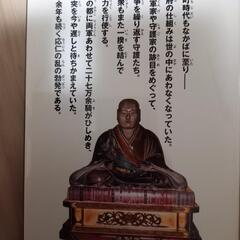 町時代もなかばに至り――
府の仕組みは世の中にあわなくなっていた。
軍家や守護家の跡目をめぐって、
争を繰り返す守護たち、
衆もまた一揆を結んで
力を行使する。
の都に両軍あわせて二十七万余騎がひしめき、
突を今や遅しと待ちかまえていた。
余年も続く応仁の乱の勃発である。